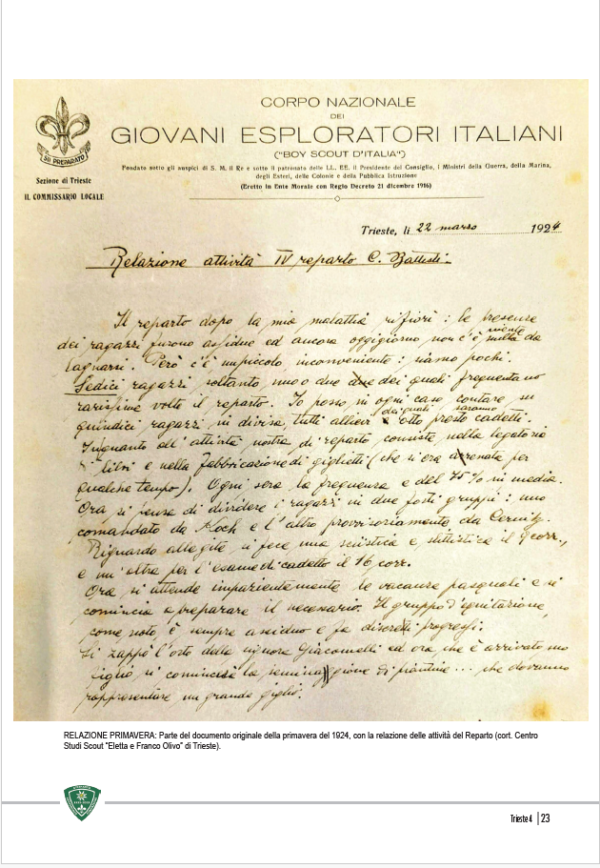 CORPO NAZIONALE
DEI
GIOVANI ESPLORATORI ITALIANI
("BOY SCOUT D'ITALIA")
Fondato sotto gli auspici di S. M. il Re e sotto il patronato delle LL. EE. il Presidente del Consiglio, i Ministri della Guerra, della Marina,
degli Esteri, delle Colonie e della Pubblica Istruzione
(Eretto in Ente Morale con Regio Decreto 21 dicembre 1916)
SII PREPARATO
Sezione di Trieste
IL COMMISSARIO LOCALE
Trieste, li 22 marzo 1924
Relazione attività IV reparto C. Battisti.
Il reparto dopo la mia malattia rifiorì: le presenze
dei ragazzi furono assidue ed ancora oggigiorno non c'è niente da
lagnarsi. Però c'è un piccolo inconveniente: siamo pochi.
Sedici ragazzi soltanto, uno o due dei quali frequentano
rarissime volte il reparto. Io posso in ogni caso contare su
quindici ragazzi in divisa, tutti allievi dei quali otto presto saranno cadetti.
Inquanto all'attività nostra di reparto consiste nella legatoria
di libri e nella fabbricazione di giglietti (che si era arrenata per
qualche tempo). Ogni sera la frequenza è del 75% in media.
Ora si pensa di dividere i ragazzi in due forti gruppi: uno
comandato da Koch e l'altro provvisoriamente da Cernitz.
Riguardo alle gite si fece una sciistica e slittistica il 9 corr.,
e un'altra per l'esame di cadetto il 16 corr.
Ora si attende impazientemente le vacanze pasquali e si
comincia a preparare il necessario. Il gruppo d'equitazione,
come noto, è sempre assiduo e fa discreti progressi.
Si zappò l'orto della signora Giacomelli ed ora che è arrivato
si comincierà la seminagione di piantine... che dovranno
rappresentare un grande giglio.
RELAZIONE PRIMAVERA: Parte del documento originale della primavera del 1924, con la relazione delle attività del Reparto (cort. Centro
Studi Scout "Eletta e Franco Olivo" di Trieste).
Trieste 4 | 23